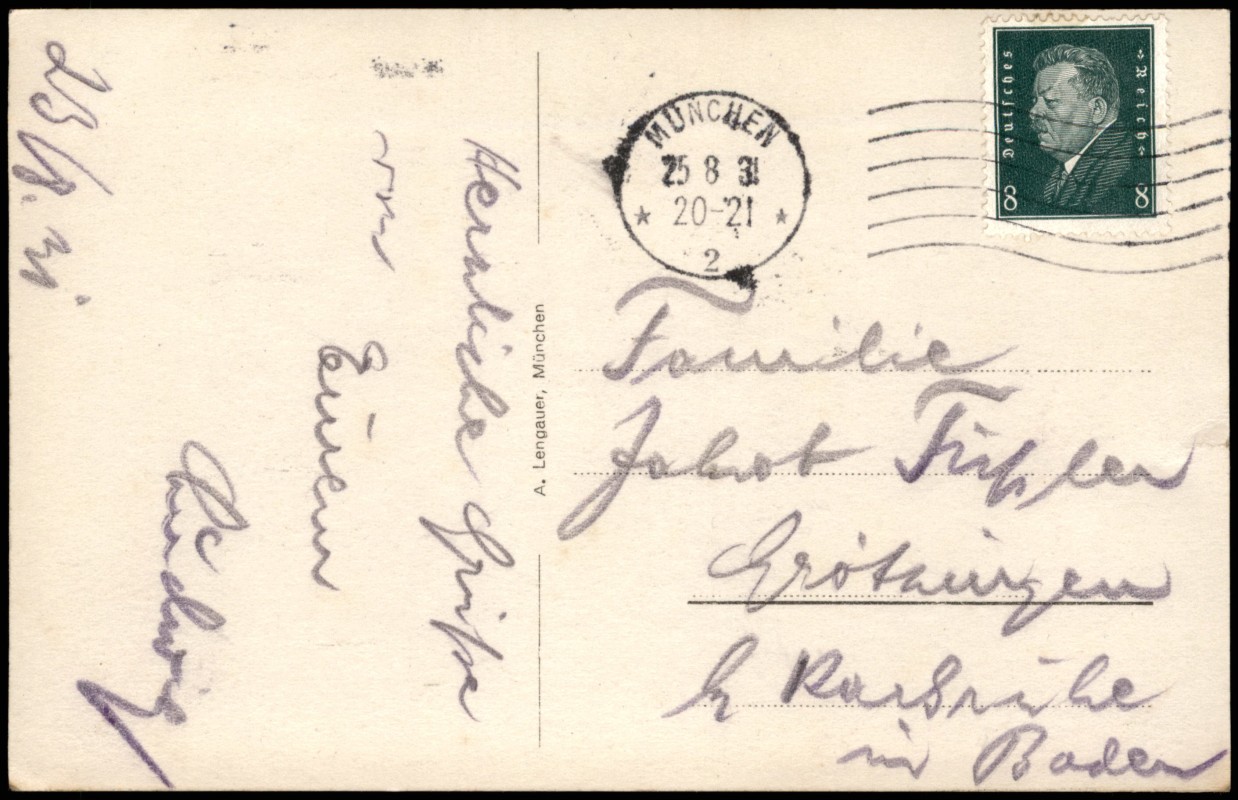 25/8. 31.
Herzliche Grüße
von
Euren
Ludwig
A. Lengauer, München
MÜNCHEN
25 8 31
20-21
2
Deutsches
Reich
8 8
Familie
Jakob Füßler
Grötzingen
b/ Karlsruhe
in Baden